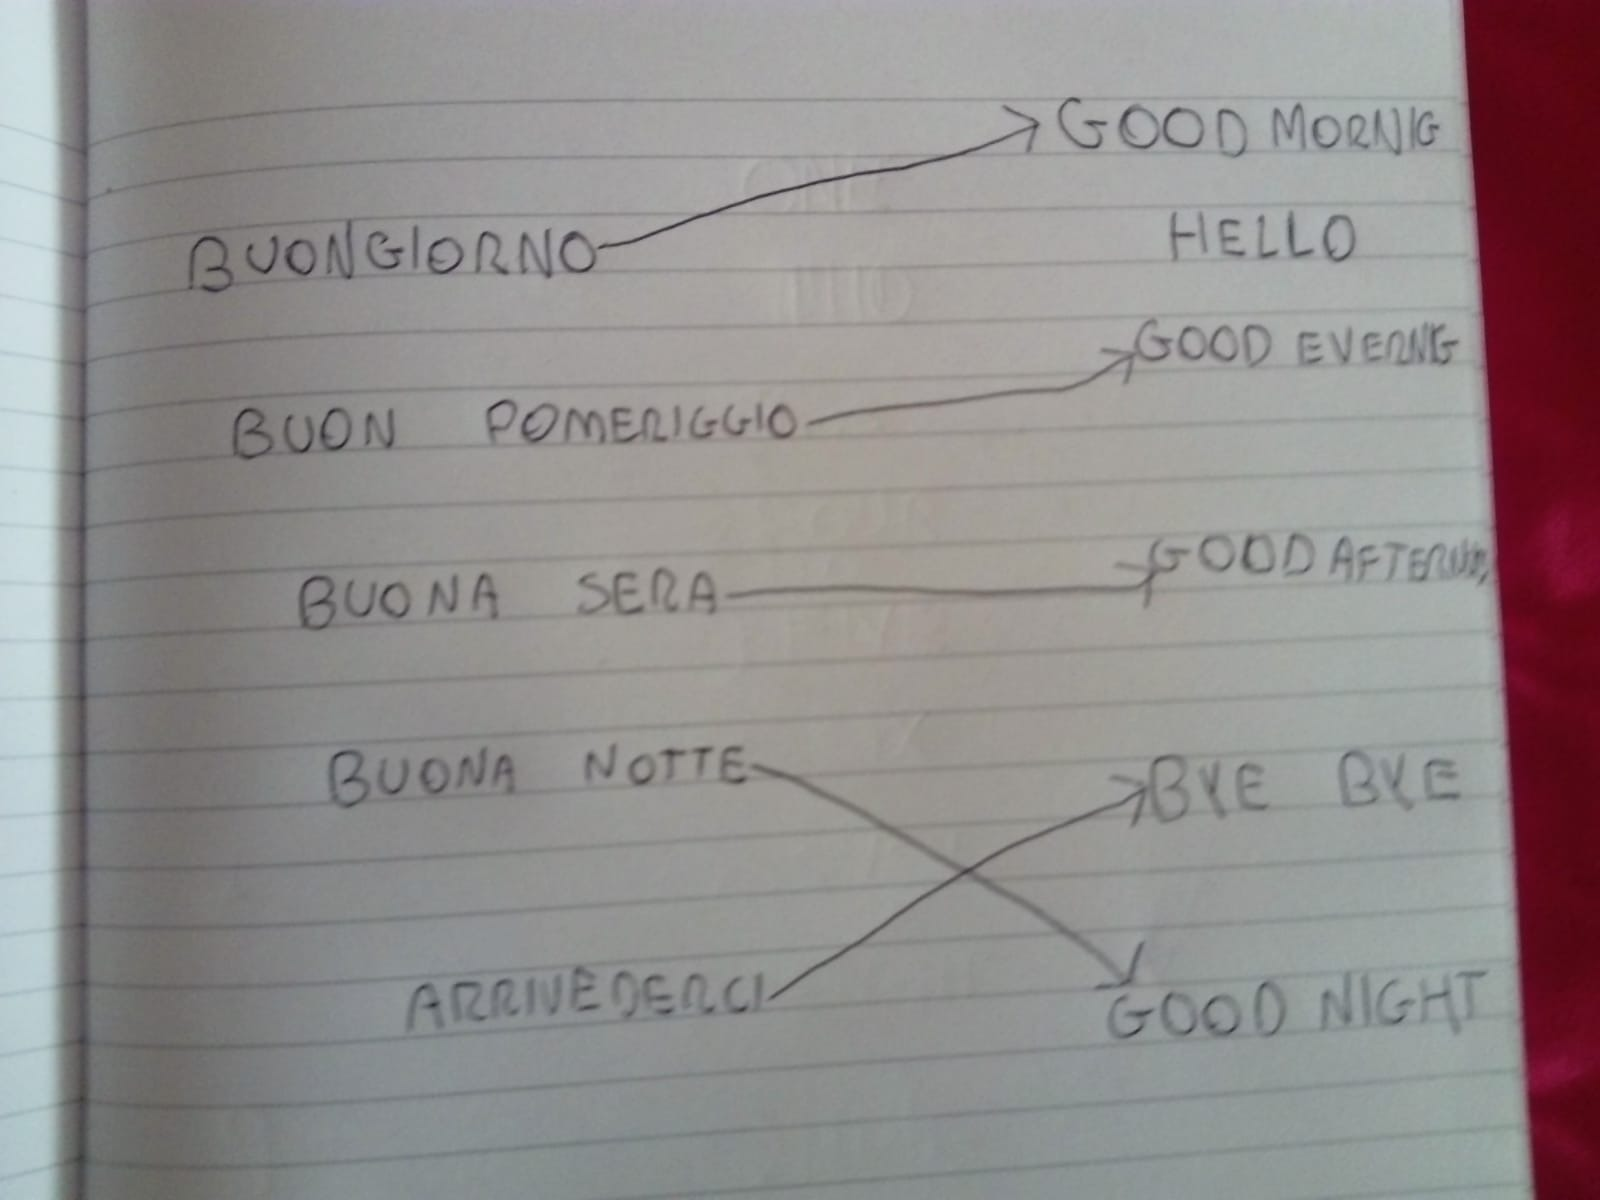 GOOD MORNIG
BUONGIORNO
HELLO
GOOD EVERNG
BUON POMERIGGIO
GOOD
BUONA SERA
BUONA NOTTE
BYE BYE
ARRIVEDERCI
GOOD NIGHT